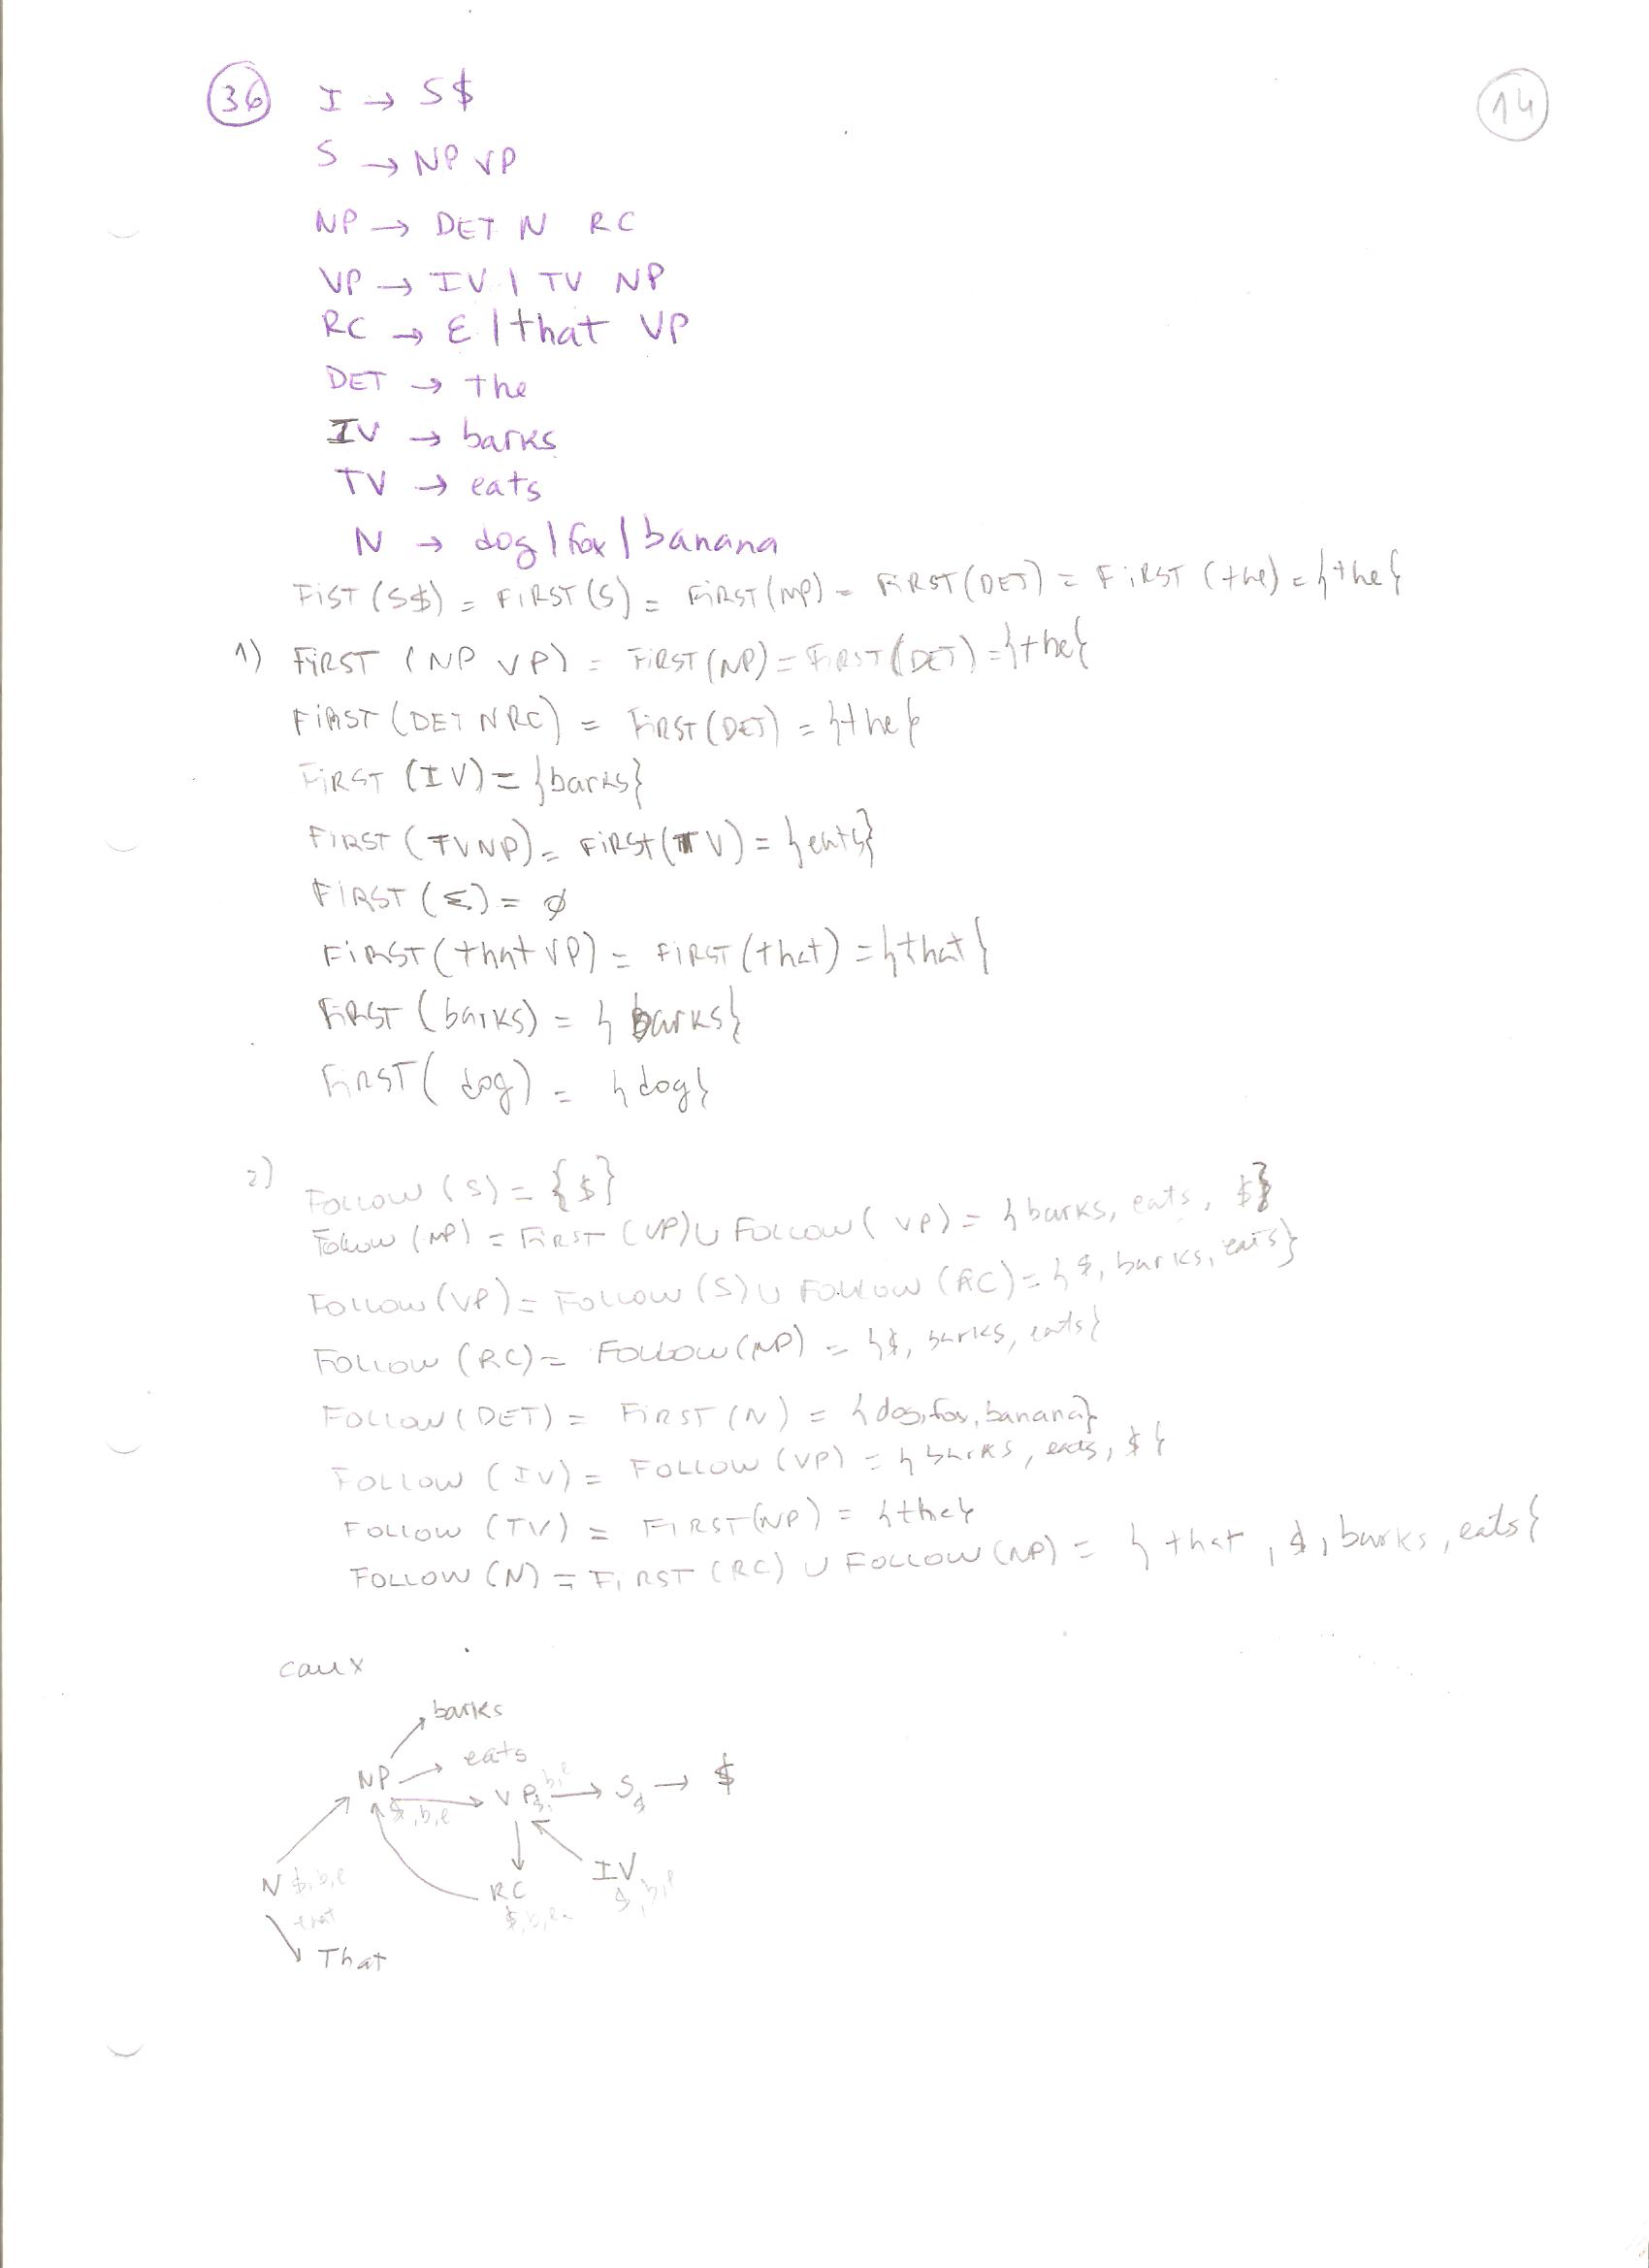 36 I → S$ 14
S → NP VP
NP → DET N RC
VP → IV | TV NP
RC → ε | that VP
DET → the
IV → barks
TV → eats
N → dog | fox | banana
FIST (S$) = FIRST (S) = FIRST (NP) = FIRST (DET) = FIRST (the) = {the}
1) FIRST (NP VP) = FIRST (NP) = FIRST (DET) = {the}
FIRST (DET N RC) = FIRST (DET) = {the}
FIRST (IV) = {barks}
FIRST (TV NP) = FIRST (TV) = {eats}
FIRST (ε) = ∅
FIRST (that VP) = FIRST (that) = {that}
FIRST (barks) = {barks}
FIRST (dog) = {dog}
2) FOLLOW (S) = {$}
FOLLOW (NP) = FIRST (VP) ∪ FOLLOW (VP) = {barks, eats, $}
FOLLOW (VP) = FOLLOW (S) ∪ FOLLOW (RC) = {$, barks, eats}
FOLLOW (RC) = FOLLOW (NP) = {$, barks, eats}
FOLLOW (DET) = FIRST (N) = {dog, fox, banana}
FOLLOW (IV) = FOLLOW (VP) = {barks, eats, $}
FOLLOW (TV) = FIRST (NP) = {the}
FOLLOW (N) = FIRST (RC) ∪ FOLLOW (NP) = {that, $, barks, eats}
barks
eats
NP $, b, e → VP $, b, e → S $ → $
N $, b, e that
RC $, b, e
IV $, b, e
That